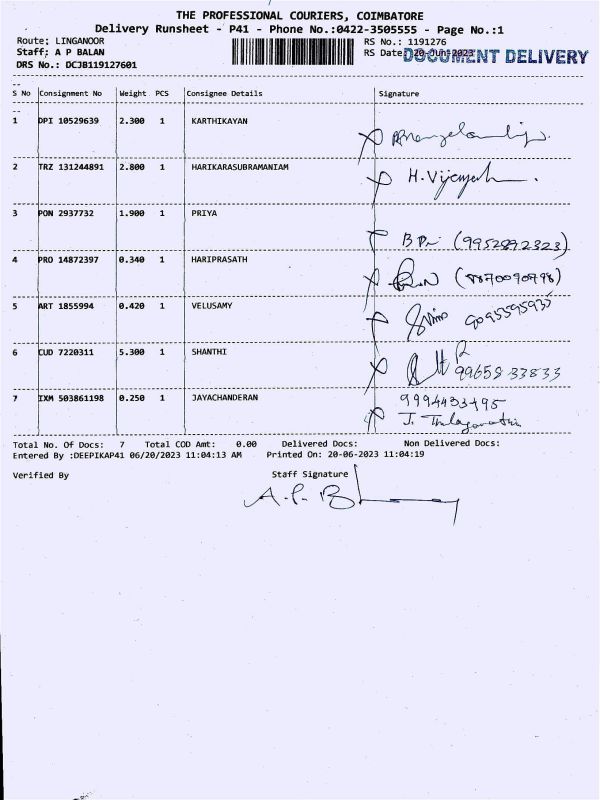 THE PROFESSIONAL COURIERS, COIMBATORE
Delivery Runsheet - P41 - Phone No.:0422-3505555 - Page No.:1
Route: LINGANOOR RS No.: 1191276
Staff: A P BALAN RS Date: 20-Jun-2023 DOCUMENT DELIVERY
DRS No.: DCJB119127601
S No Consignment No Weight PCS Consignee Details Signature
1 DPI 10529639 2.300 1 KARTHIKAYAN
2 TRZ 131244891 2.800 1 HARIKARASUBRAMANIAM H. 
3 PON 2937732 1.900 1 PRIYA
(9952892323)
4 PRO 14872397 0.340 1 HARIPRASATH
(8870090798)
5 ART 1855994 0.420 1 VELUSAMY
9095595935
6 CUD 7220311 5.300 1 SHANTHI
99658 33833
7 IXM 503861198 0.250 1 JAYACHANDERAN 9994433495
J.
Total No. Of Docs: 7 Total COD Amt: 0.00 Delivered Docs: Non Delivered Docs:
Entered By :DEEPIKAP41 06/20/2023 11:04:13 AM Printed On: 20-06-2023 11:04:19
Verified By Staff Signature
A.P. B